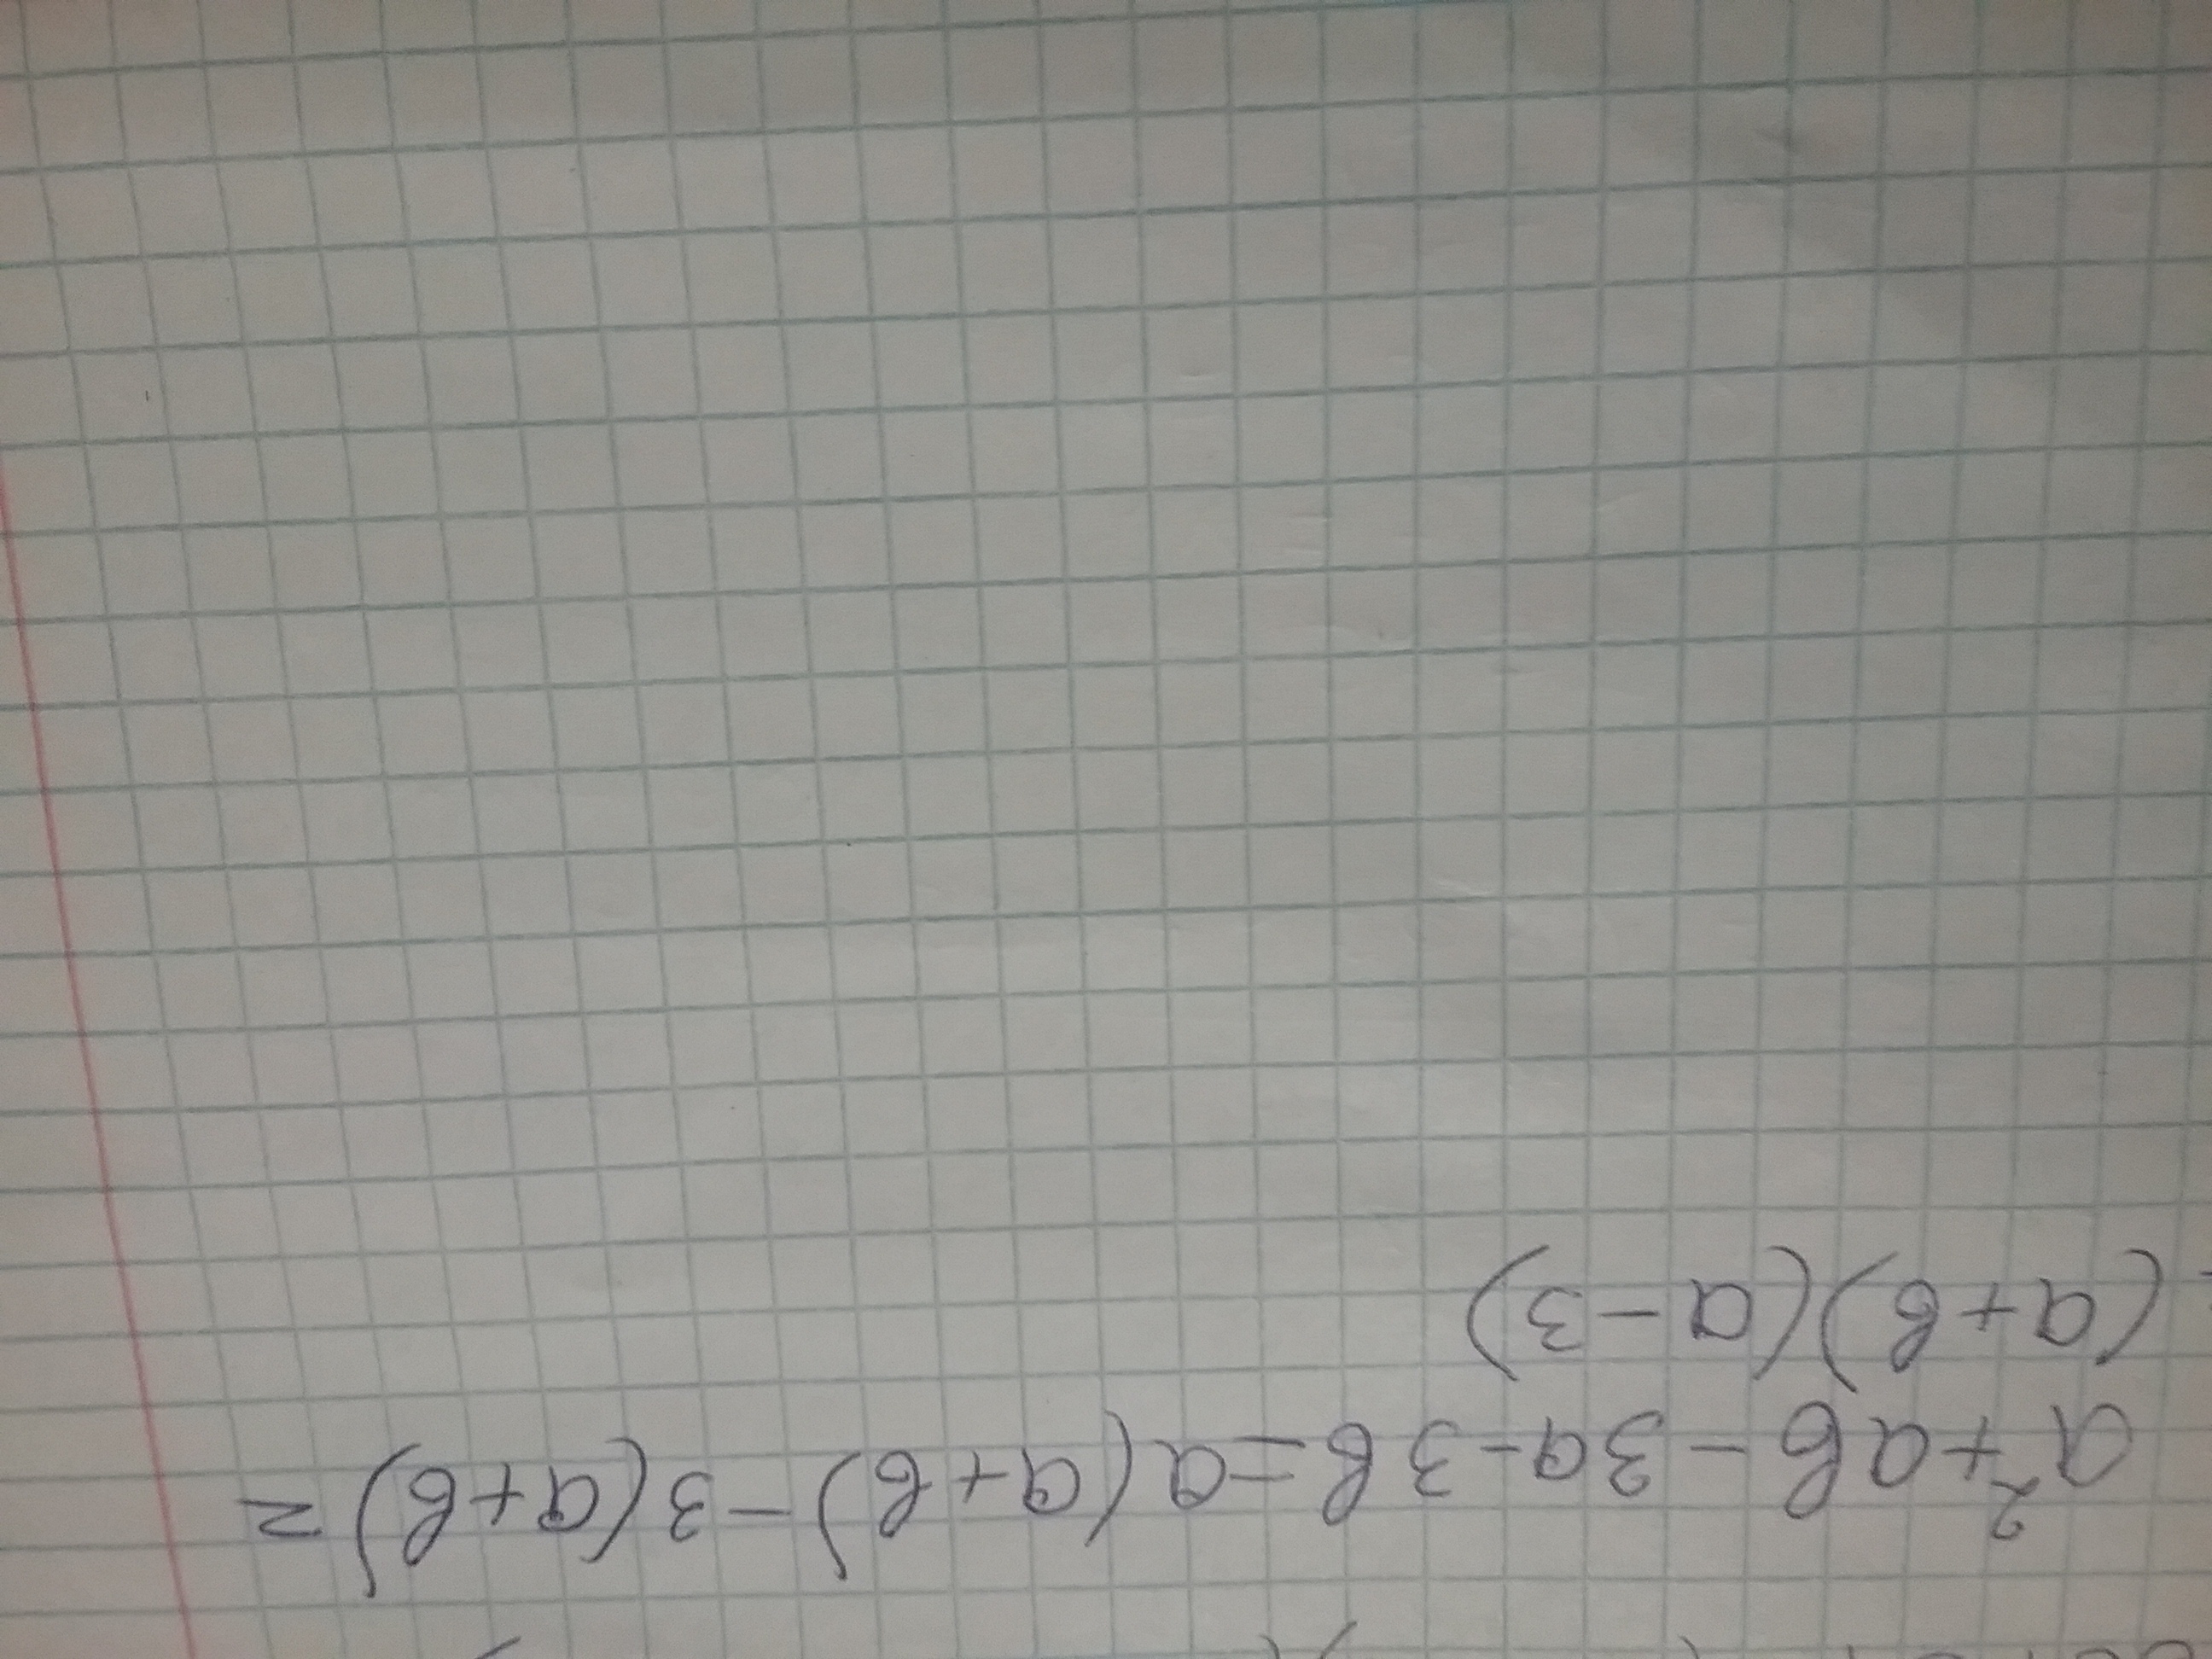 a²+ab-3a-3b=a(a+b)-3(a+b)=
(a+b)(a-3)